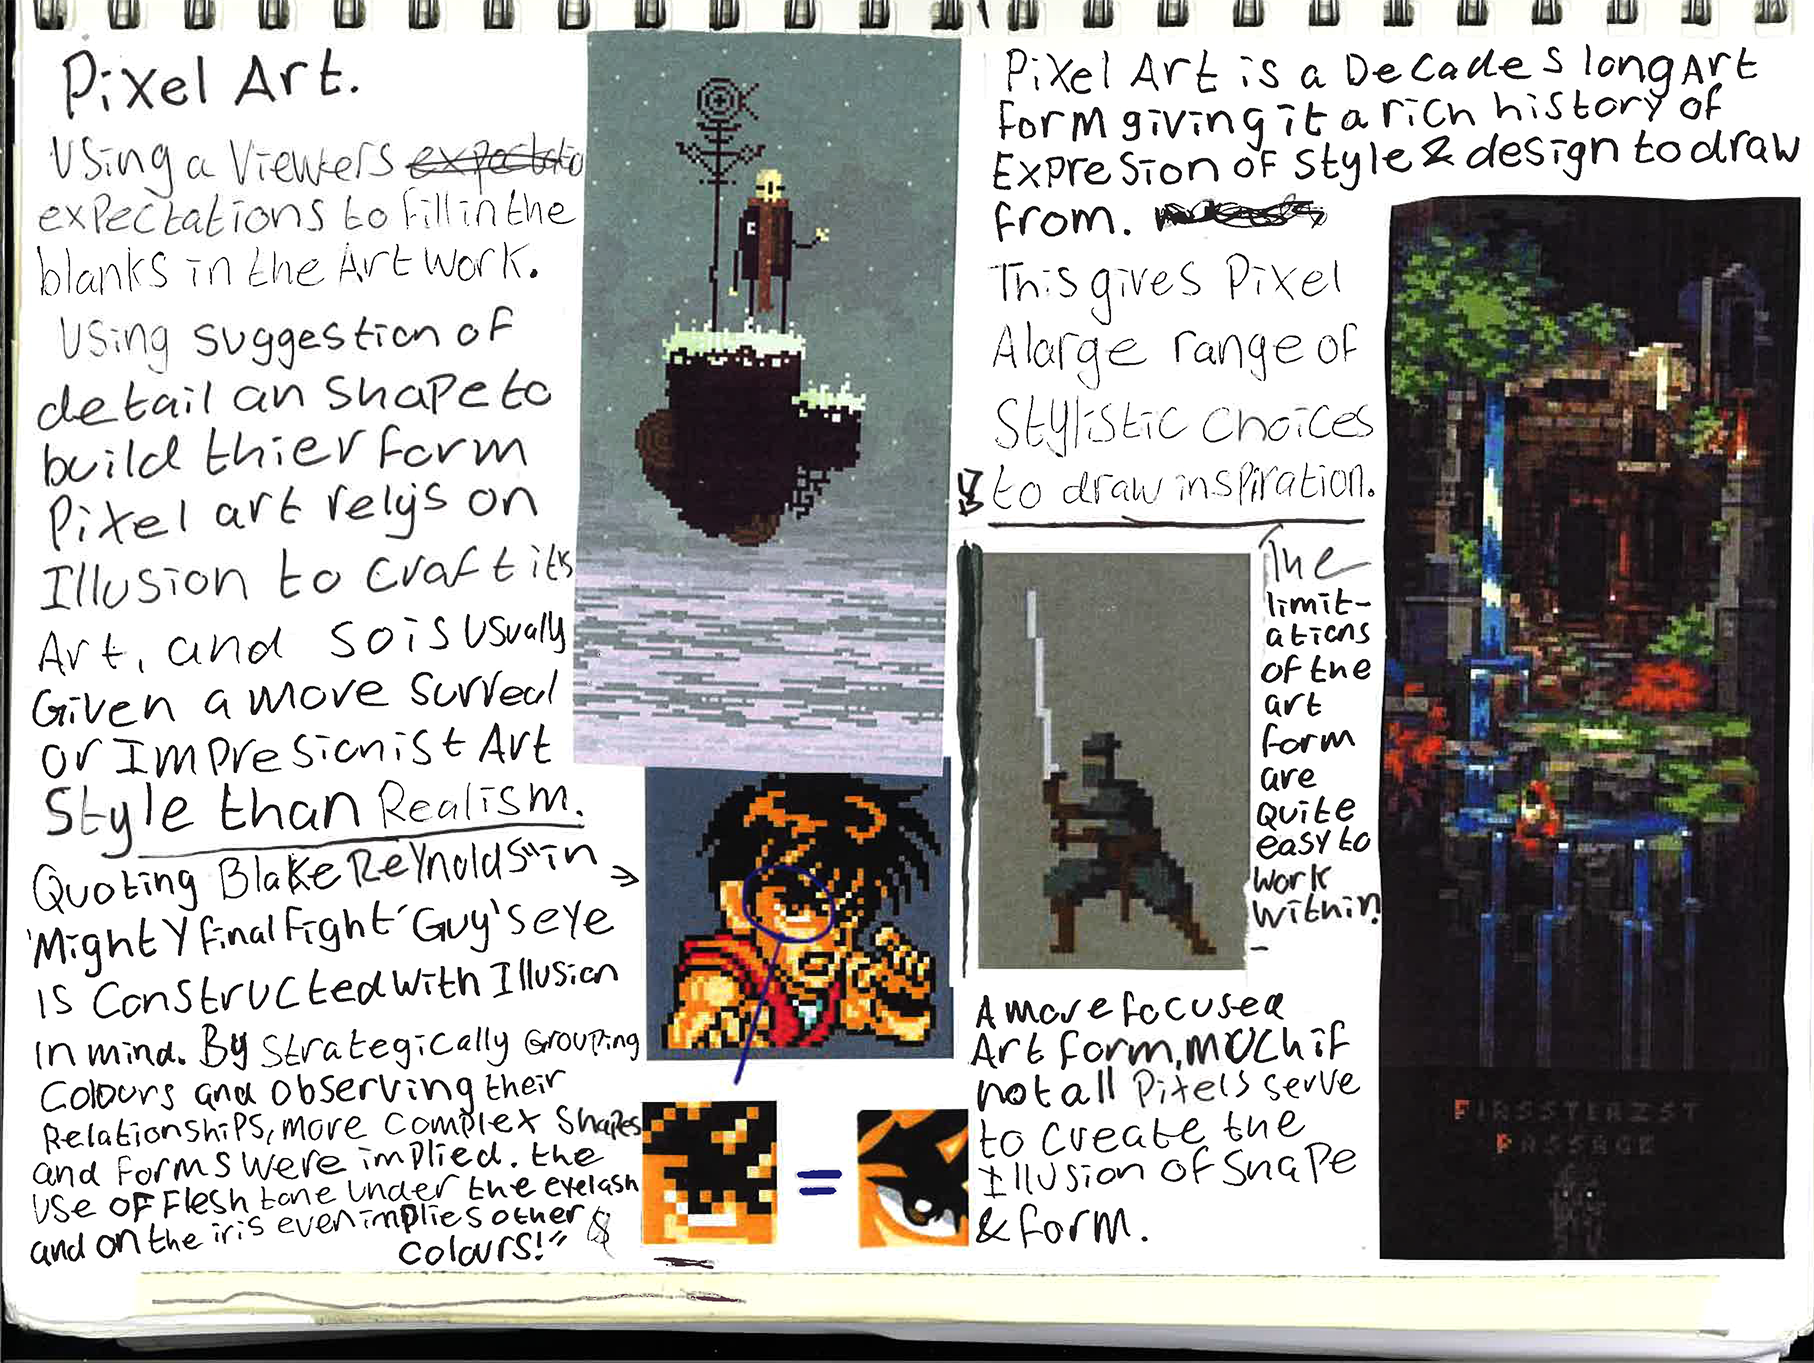 Pixel Art.
Using a Viewers expectatio
expectations to fill in the
blanks in the Art work.
Using suggestion of
detail an shape to
build thier form
Pixel art relys on
Illusion to craft its
Art, and so is usually
Given a more surreal
or Impresionist Art
Style than Realism.
Quoting Blake Reynolds "in
'Mighty final fight' 'Guy's eye
is constructed with Illusion
in mind. By strategically Grouping
Colours and observing their
Relationships, more complex shapes
and forms were implied. the
use of Flesh tone under the eyelash
and on the iris even implies other
colours!"
=
Pixel Art is a Decades long Art
form giving it a rich history of
Expresion of style & design to draw
from.
This gives Pixel
A large range of
Stylistic choices
to draw inspiration.
The
limit-
ations
of the
art
form
are
quite
easy to
work
within
-
A more focused
Art form, much if
not all Pixels serve
to create the
Illusion of Shape
& form.
FIRSSTERZST
PASSAGE